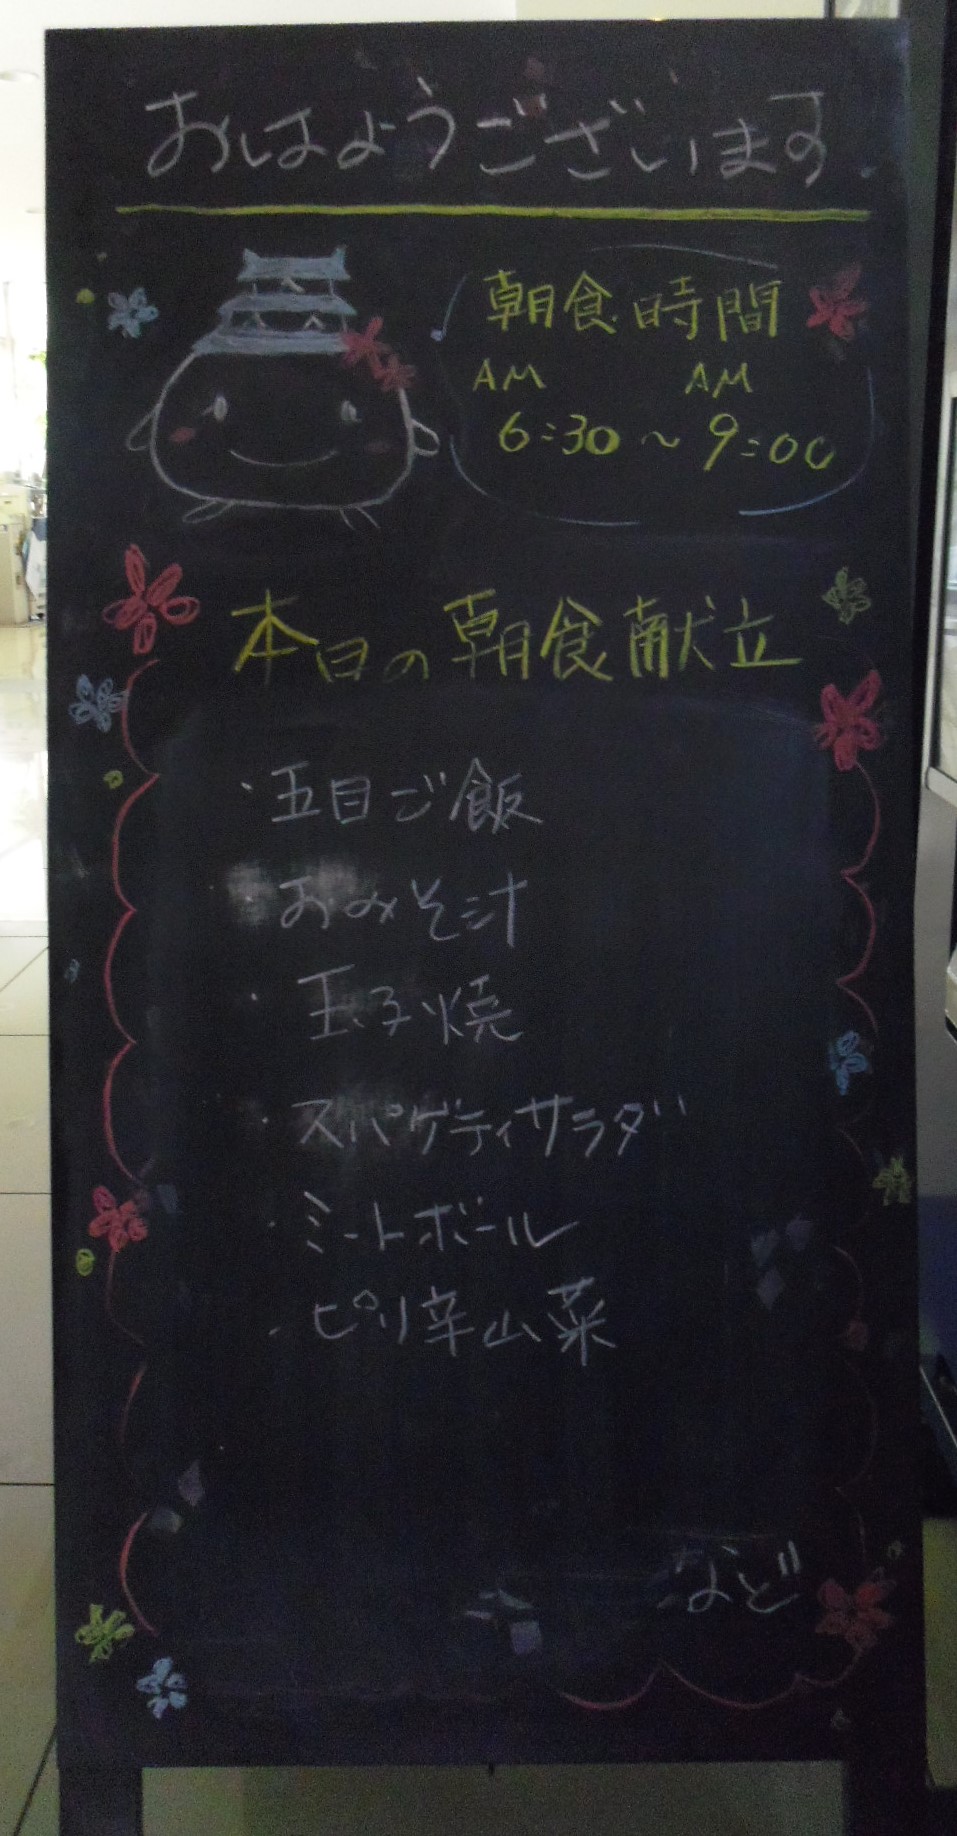 おはようございます.
朝食時間
AM AM
6:30～9:00
本日の朝食献立
・五目ご飯
・おみそ汁
・玉子焼
・スパゲティサラダ
・ミートボール
・ピリ辛山菜
など